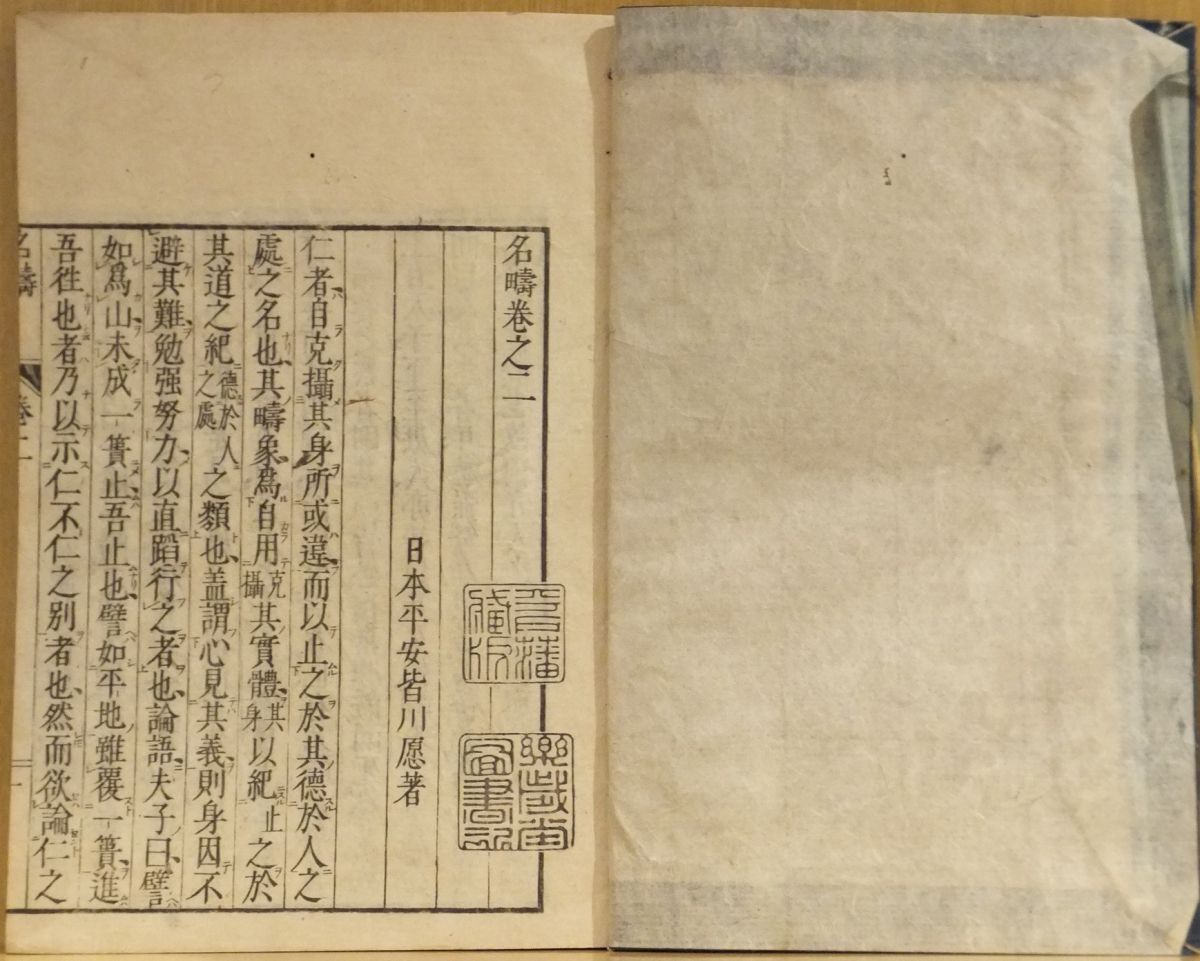 名疇卷之二
日本平安皆川愿著
仁者自克攝其身所或違而以止之於其德於人之
處之名也其疇象爲自用克攝其實體其身以紀止之於
其道之紀德於人之處之類也盖謂心見其義則身因不
避其難勉强努力以直蹈行之者也論語夫子曰譬
如爲山未成一簣止吾止也譬如平地雖覆一簣進
吾徃也者乃以示仁不仁之別者也然而欲論仁之
名疇
卷二
一
樂歲堂
圖書記